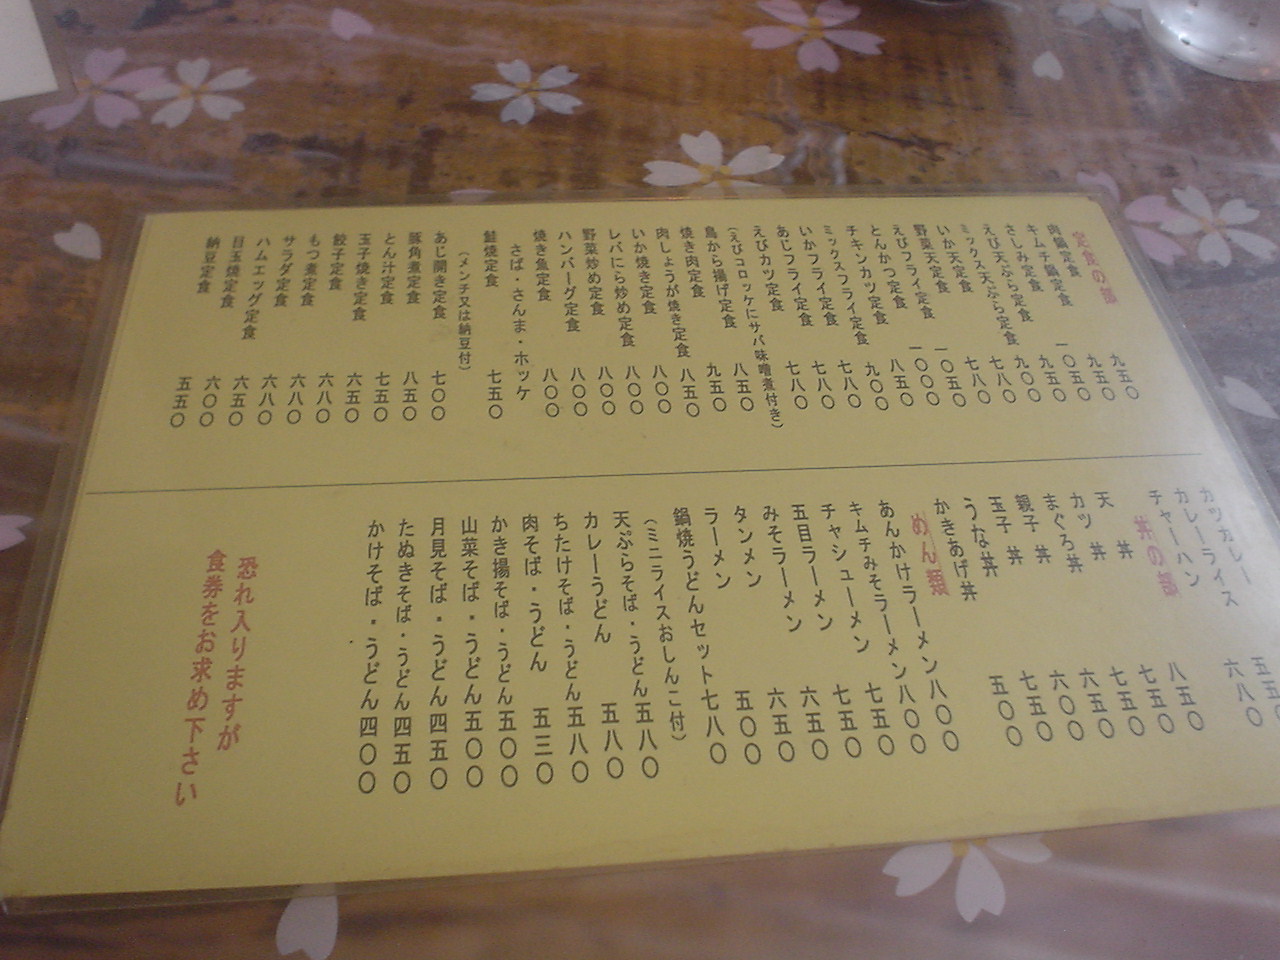 定食の部
肉鍋定食 九五〇
キムチ鍋定食 九五〇
さしみ定食 一〇五〇
えび天ぷら定食 九五〇
ミックス天ぷら定食 九〇〇
いか天定食 七八〇
野菜天定食 七八〇
えびフライ定食 一〇五〇
とんかつ定食 一〇〇〇
チキンカツ定食 八五〇
ミックスフライ定食 九〇〇
いかフライ定食 七八〇
あじフライ定食 七八〇
えびカツ定食 七八〇
(えびコロッケにサバ味噌煮付き)
鳥から揚げ定食 八五〇
焼き肉定食 九五〇
肉しょうが焼き定食 八五〇
いか焼き定食 八〇〇
レバにら炒め定食 八〇〇
野菜炒め定食 八〇〇
ハンバーグ定食 八〇〇
焼き魚定食 八〇〇
さば・さんま・ホッケ
鮭焼定食 七五〇
(メンチ又は納豆付)
あじ開き定食 七〇〇
豚角煮定食 八五〇
とん汁定食 七五〇
玉子焼き定食 六五〇
餃子定食 六八〇
もつ煮定食 六八〇
サラダ定食 六八〇
ハムエッグ定食 六五〇
目玉焼定食 六〇〇
納豆定食 五五〇
カツカレー
カレーライス 五五〇
チャーハン 六八〇
丼の部
天 丼 八五〇
カツ 丼 七五〇
まぐろ丼 七五〇
親子 丼 六五〇
玉子 丼 六〇〇
うな丼 七五〇
かきあげ丼 五〇〇
めん類
あんかけラーメン 八〇〇
キムチみそラーメン 八〇〇
チャシューメン 七五〇
五目ラーメン 七五〇
みそラーメン 六五〇
タンメン 六五〇
ラーメン 五〇〇
鍋焼うどんセット 七八〇
(ミニライスおしんこ付)
天ぷらそば・うどん 五八〇
カレーうどん 五八〇
ちたけそば・うどん 五八〇
肉そば・うどん 五三〇
かき揚そば・うどん 五〇〇
山菜そば・うどん 五〇〇
月見そば・うどん 四五〇
たぬきそば・うどん 四五〇
かけそば・うどん 四〇〇
恐れ入りますが
食券をお求め下さい